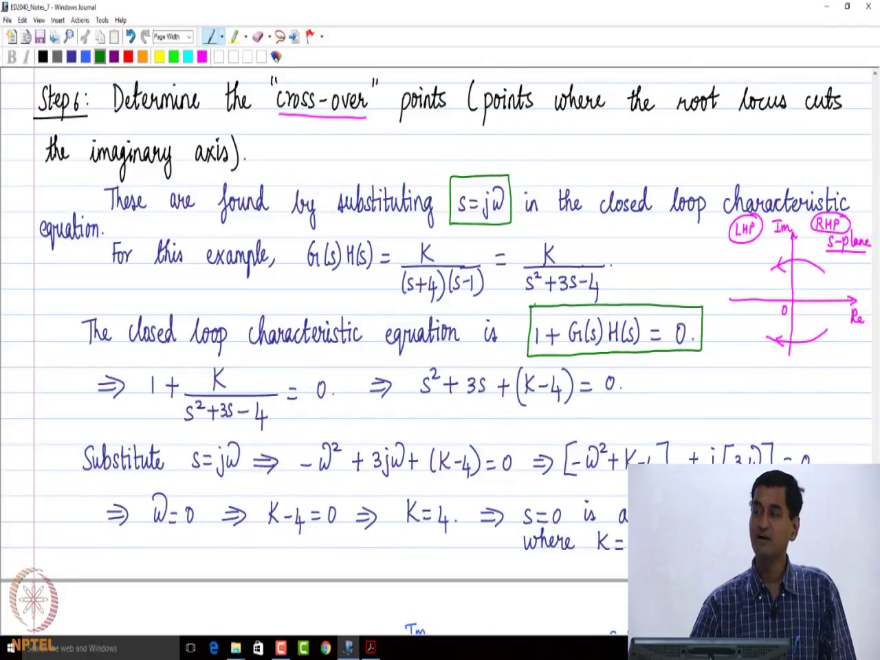 ED2040_Notes_7 - Windows Journal
File Edit View Insert Actions Tools Help
Page Width
B I
Step 6: Determine the "cross-over" points (points where the root locus cuts
the imaginary axis).
These are found by substituting s=jω in the closed loop characteristic
equation.
LHP Im RHP
s-plane
0
Re
For this example, G(s)H(s) = K/((s+4)(s-1)) = K/(s²+3s-4).
The closed loop characteristic equation is 1 + G(s)H(s) = 0.
⇒ 1 + K/(s²+3s-4) = 0. ⇒ s²+3s+(K-4) = 0.
Substitute s=jω ⇒ -ω²+3jω+(K-4)=0 ⇒ [-ω²+K-4] + j[3ω] = 0
⇒ ω=0 ⇒ K-4=0 ⇒ K=4. ⇒ s=0 is a
where K=
Im
NPTEL
the web and Windows